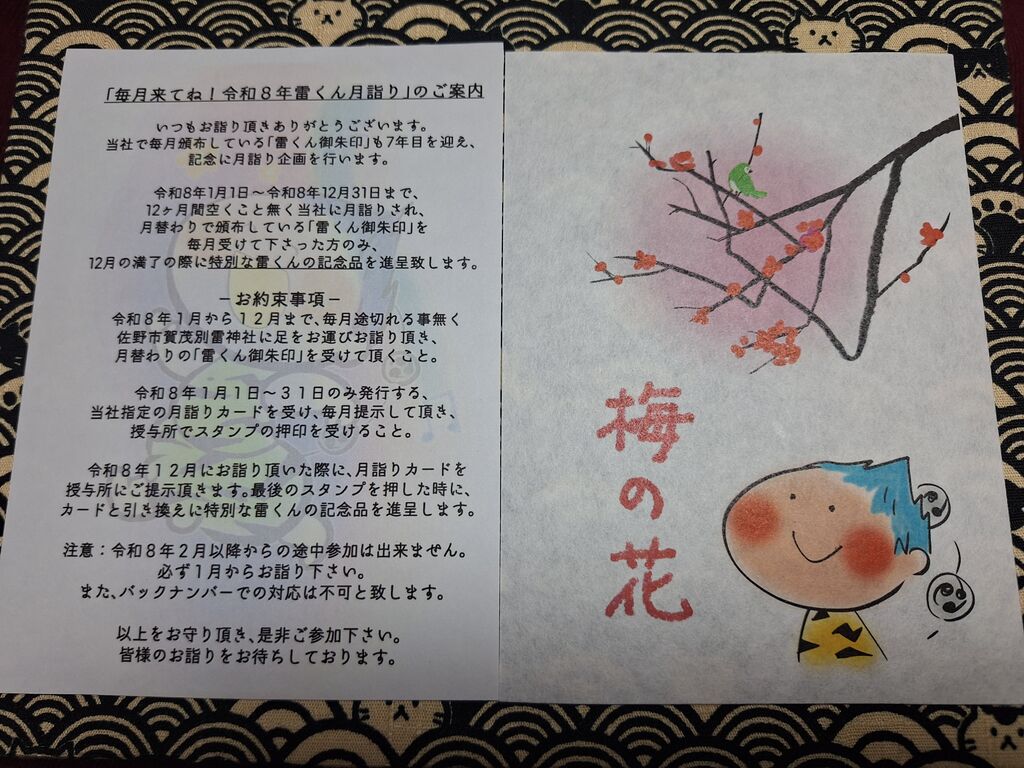 「毎月来てね！令和８年雷くん月詣り」のご案内
いつもお詣り頂きありがとうございます。
当社で毎月頒布している「雷くん御朱印」も7年目を迎え、
記念に月詣り企画を行います。
令和8年1月1日～令和8年12月31日まで、
12ヶ月間空くこと無く当社に月詣りされ、
月替わりで頒布している「雷くん御朱印」を
毎月受けて下さった方のみ、
12月の満了の際に特別な雷くんの記念品を進呈致します。
－お約束事項－
令和８年１月から１２月まで、毎月途切れる事無く
佐野市賀茂別雷神社に足をお運びお詣り頂き、
月替わりの「雷くん御朱印」を受けて頂くこと。
令和８年１月１日～３１日のみ発行する、
当社指定の月詣りカードを受け、毎月提示して頂き、
授与所でスタンプの押印を受けること。
令和８年１２月にお詣り頂いた際に、月詣りカードを
授与所にご提示頂きます。最後のスタンプを押した時に、
カードと引き換えに特別な雷くんの記念品を進呈します。
注意：令和８年２月以降からの途中参加は出来ません。
必ず１月からお詣り下さい。
また、バックナンバーでの対応は不可と致します。
以上をお守り頂き、是非ご参加下さい。
皆様のお詣りをお待ちしております。
梅の花